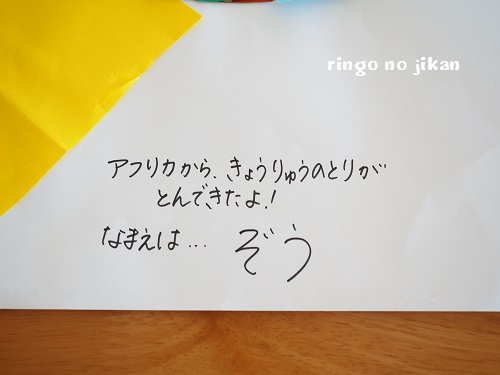 ringo no jikan
アフリカから、きょうりゅうのとりが
とんできたよ!
なまえは... ぞう